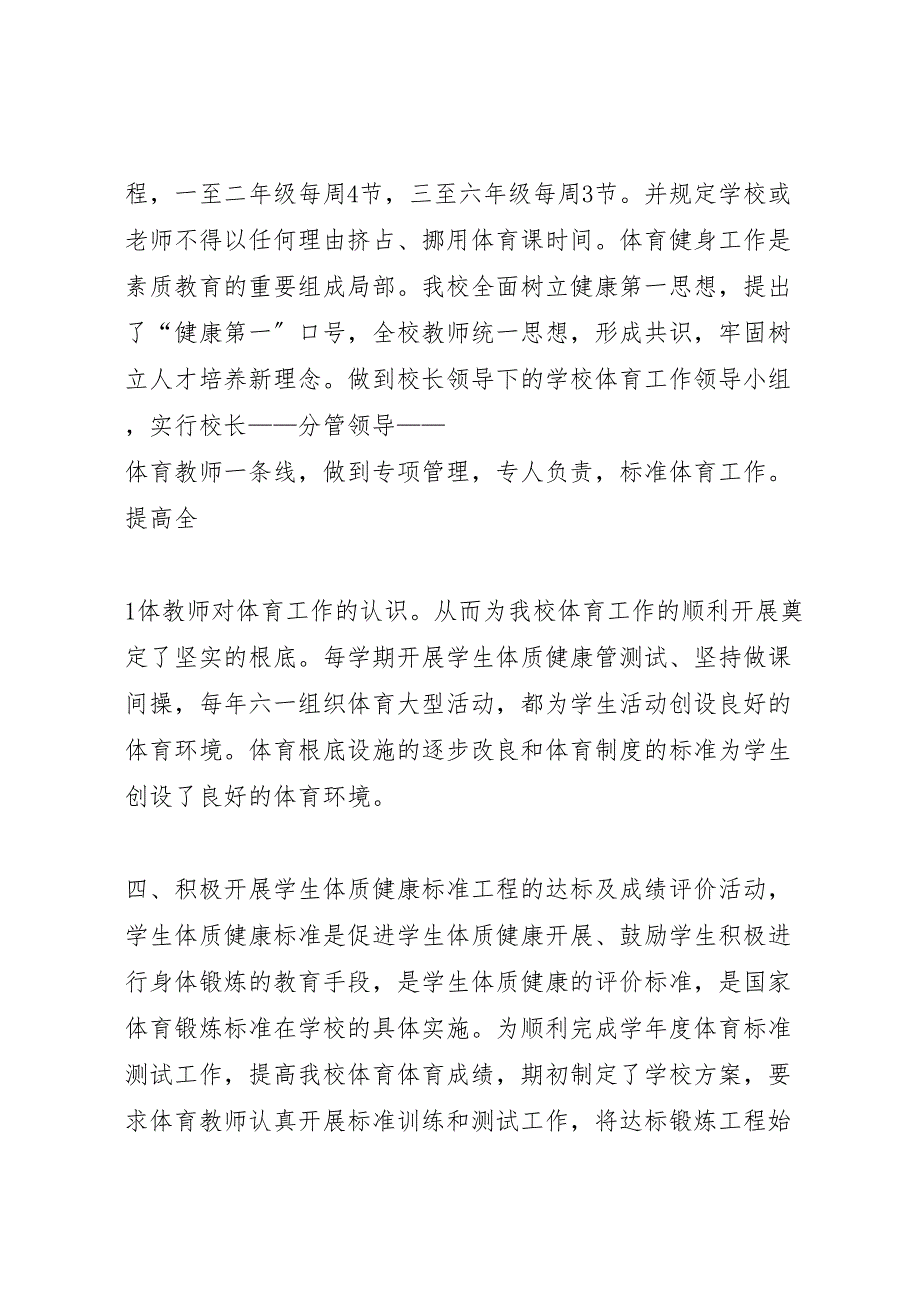 程，一至二年级每周4节，三至六年级每周3节。并规定学校或
老师不得以任何理由挤占、挪用体育课时间。体育健身工作是
素质教育的重要组成局部。我校全面树立健康第一思想，提出
了“健康第一〞口号，全校教师统一思想，形成共识，牢固树
立人才培养新理念。做到校长领导下的学校体育工作领导小组
，实行校长——分管领导——
体育教师一条线，做到专项管理，专人负责，标准体育工作。
提高全
1体教师对体育工作的认识。从而为我校体育工作的顺利开展奠
定了坚实的根底。每学期开展学生体质健康管测试、坚持做课
间操，每年六一组织体育大型活动，都为学生活动创设良好的
体育环境。体育根底设施的逐步改良和体育制度的标准为学生
创设了良好的体育环境。
四、积极开展学生体质健康标准工程的达标及成绩评价活动，
学生体质健康标准是促进学生体质健康开展、鼓励学生积极进
行身体锻炼的教育手段，是学生体质健康的评价标准，是国家
体育锻炼标准在学校的具体实施。为顺利完成学年度体育标准
测试工作，提高我校体育体育成绩，期初制定了学校方案，要
求体育教师认真开展标准训练和测试工作，将达标锻炼工程始